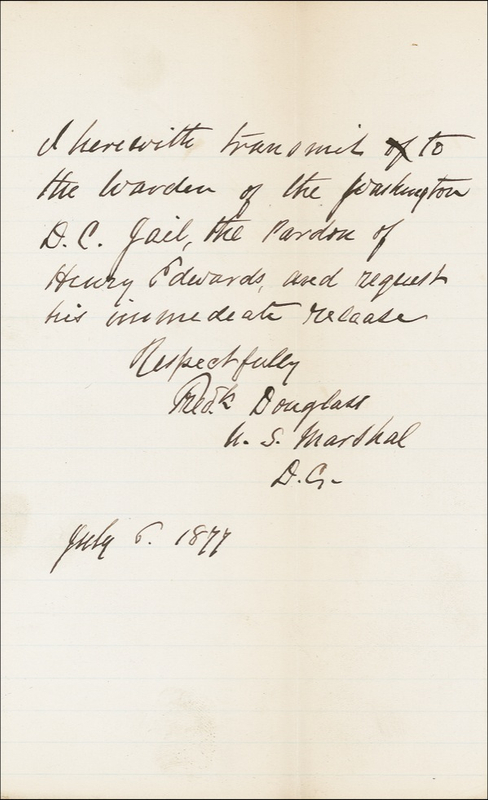 I herewith transmit of to
the Warden of the Washington
D.C. Jail, the Pardon of
Henry Edwards, and request
his immedeate release
Respectfully
Fredk Douglass
U. S. Marshal
D.C.
July 6. 1877